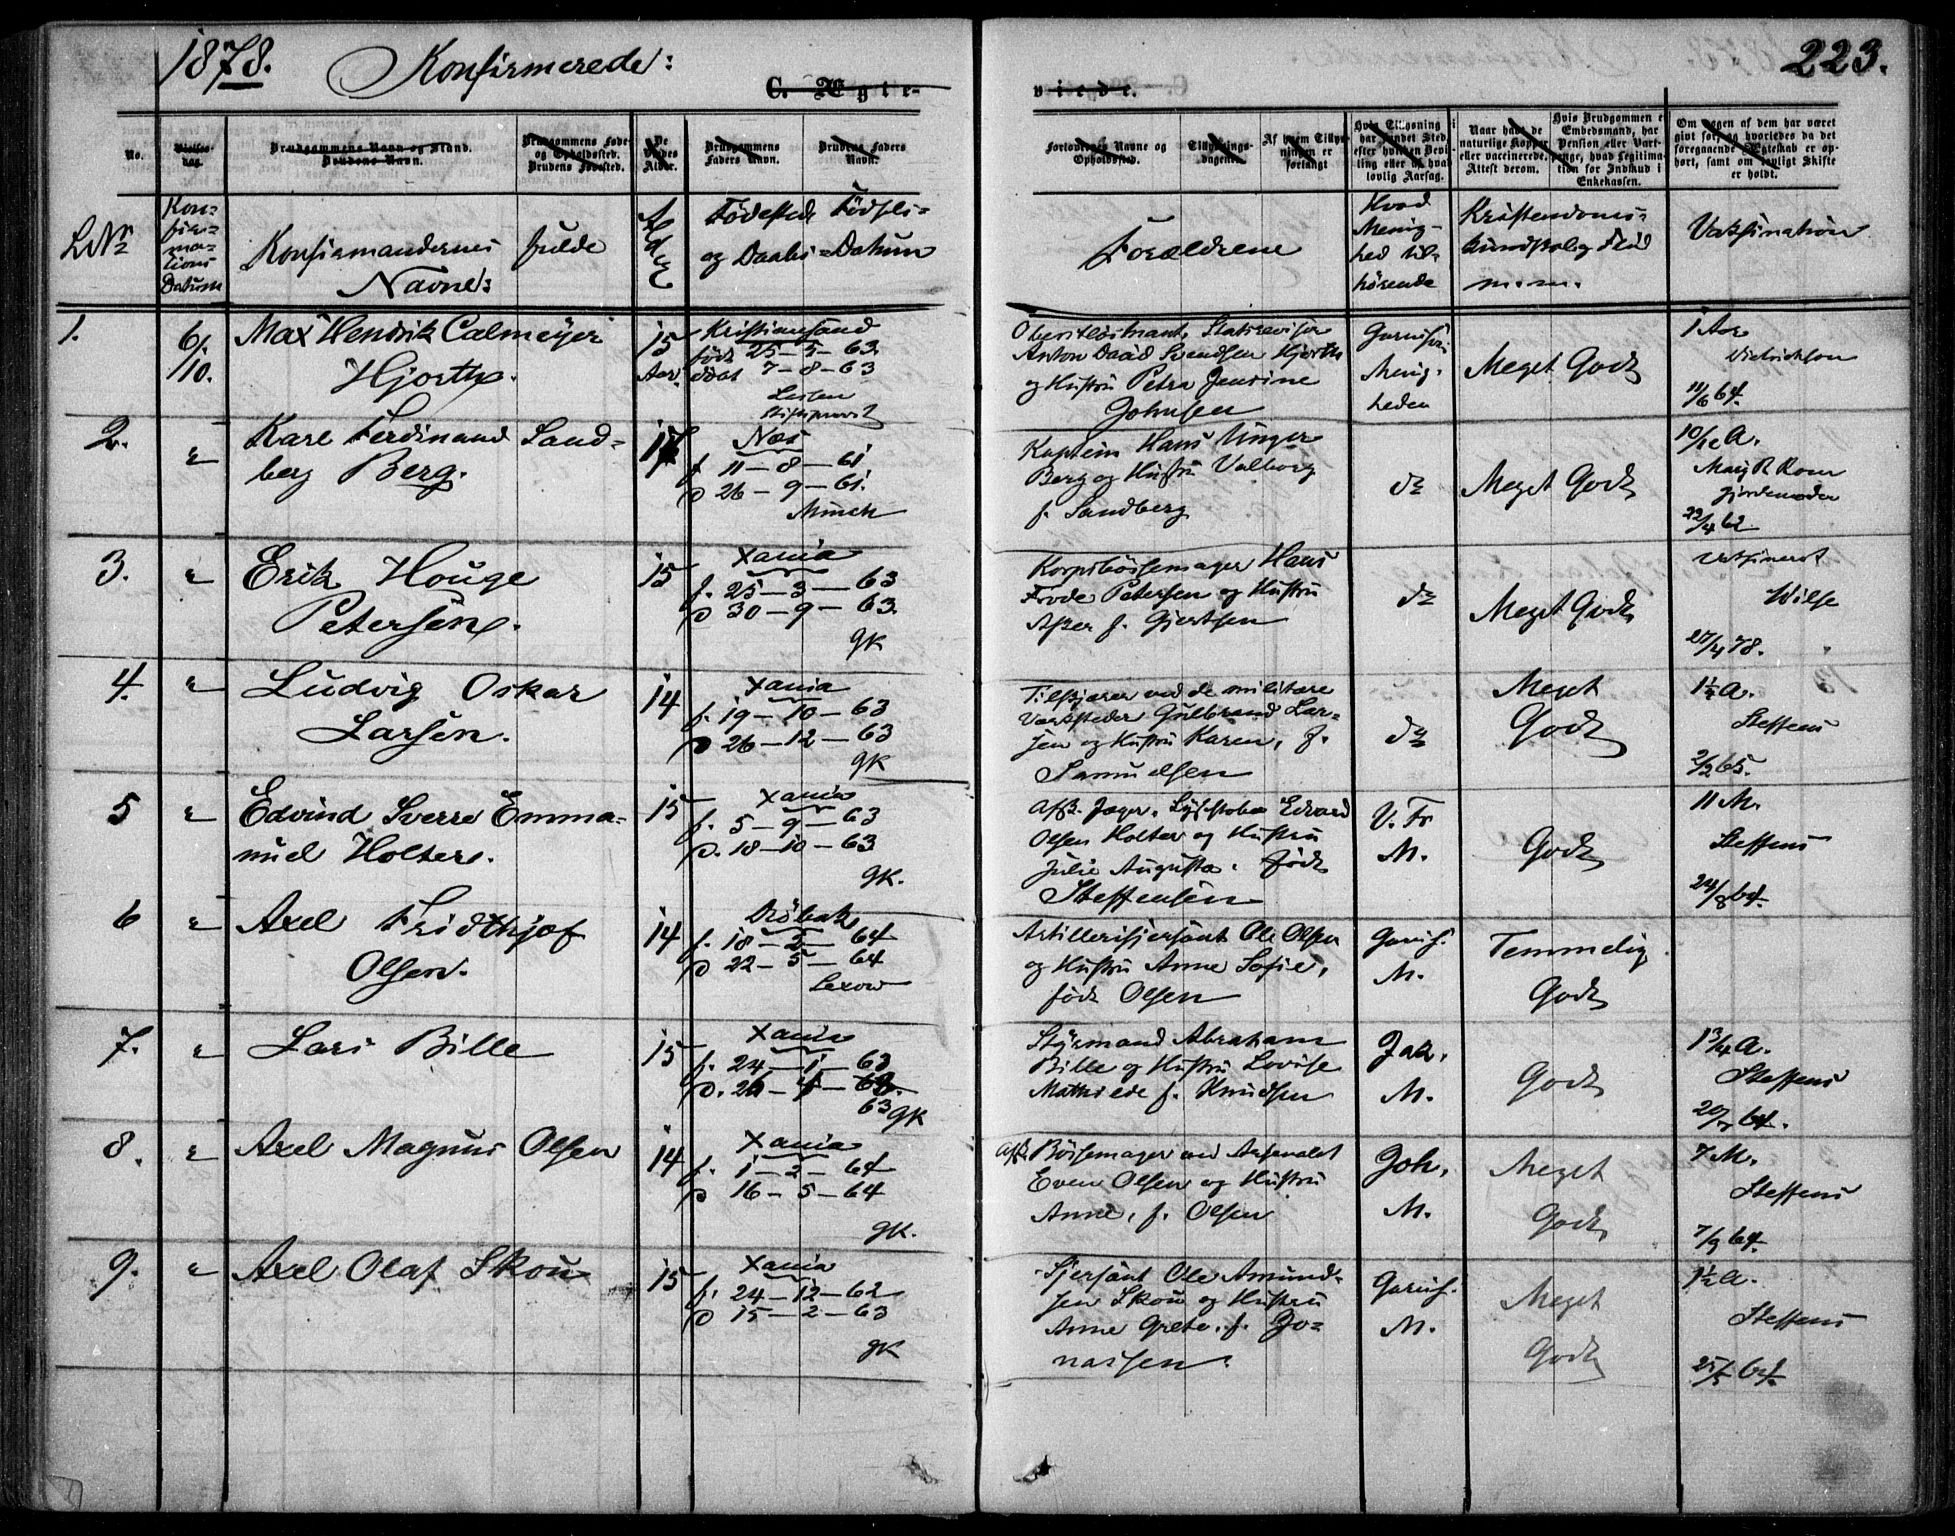 1878. Konfirmerede:
C. Ægte-
viede.
223.
No.
Vielses-
dag.
Brudgommens Navn og Stand.
Brudens Navn.
Brudgommens Føde-
og Opholdssted.
Brudens Fødested.
De
Viedes
Alder.
Brudgommens
Faders Navn.
Brudens Faders
Navn.
Forlovernes Navne og
Opholdssted.
Tillysnings-
dagene.
Af hvem Tillys-
ningen er
forlangt
Hvis Tillysning i
har fundet Sted,
efter hvilken Bevil-
ling eller af hvad
lovlig Aarsag.
Naar havt de
naturlige Kopper
eller vaccinerede.
Attest derom.
Hvis Brudgommen er
Embedsmand, har
Pension eller Vart-
penge, hvad Legitima-
tion for Indskud i
Enkekassen.
Om nogen af dem har været
gift før, og hvorledes da det
foregaaende Ægteskab er op-
hørt, samt om lovligt Skifte
er holdt.
LNr
Kon-
fir-
ma-
tions
Datum
Konfirmandernes fulde
Navne:
Alder
Fødested, Fødsels-
og Daabs-Datum
Forældrene
Hvad
Menig-
hed til-
hørende
Kristendoms-
kundskab, Flid
m.m.
Vaksination
1.
6/
10.
Max Hendrik Calmeyer
Hjorth.
15
Aar.
Kristiansand
født 25-5-63.
døbt 7-8-63
Stiftsprovst
Oberstløitnant, Statsrevisor
Anton David Svendsen Hjorth
og Hustru Petra Jensine
Johnsen
Garnisons
Menig-
heden
Meget Godt
1 Aar
Dietrichson
11/6 64.
2.
"
Karl Ferdinand Sand-
berg Berg.
17
Næs
f. 11-8-61.
d 26-9-61.
Munch
Kaptein Hans Unger
Berg og Hustru Valborg
f. Sandberg
do
Meget Godt
10/12 A.
Gjordemoder
22/4 62
3.
"
Erik Houge
Petersen.
15
Xania
f. 25-3-63
d 30-9-63.
gk
Korpsbøssemager Hans
Frode Petersen og Hustru
f. Gjertsen
do
Meget Godt
Vaksineret
Wilse
27/4 78.
4.
"
Ludvig Oskar
Larsen.
14
Xania
f. 19-10-63
d 26-12-63
gk
Tilskjærer ved de militære
Værksteder Gulbrand Lar-
sen og Hustru Karen, f.
Samuelsen
do
Meget
Godt
1½ A.
Steffens
2/2 65.
5
"
Edvind Sverre Emma-
nuel Holter.
15
Xania
f. 5-9-63
d. 18-10-63
gk.
afsk. Jæger, Edvard
Olsen Holter og Hustru
Julie Augusta. født
Steffensen
V. Fr
M.
Godt
11 M.
Steffens
24/8 64.
6
"
Axel Fridthjof
Olsen.
14
Drøbak
f. 18-2-64
d 22-5-64
Lexow
Artillerisjersant Ole Olsen
og Hustru Anne Sofie,
født Olsen
Garnis.
M.
Temmelig
Godt
7.
"
Lars Bille
15
Xania
f. 24-1-63
d. 26-4-
63
gk
Styrmand Abraham
Bille og Hustru Lovise
Mathilde f. Knudsen
Jak.
M.
Godt
1¾ A.
Steffens
64.
8.
"
Axel Magnus Olsen
14
Xania
f. 1-2-64
d 16-5-64
gk.
afsk. Bøssemager ved Arsenalet
Even Olsen og Hustru
Anne, f. Olsen
Joh.
M.
Meget
Godt
7 M.
Steffens
7/9 64.
9.
"
Axel Olaf Skou
15
Xania
f. 24-12-62
d 15-2-63
gk
Sjersant Ole Amund-
sen Skou og Hustru
Anne Grete, f. Jo-
nassen.
Garnis.
M.
Meget
Godt
1½ A.
Steffens
25/5 64.